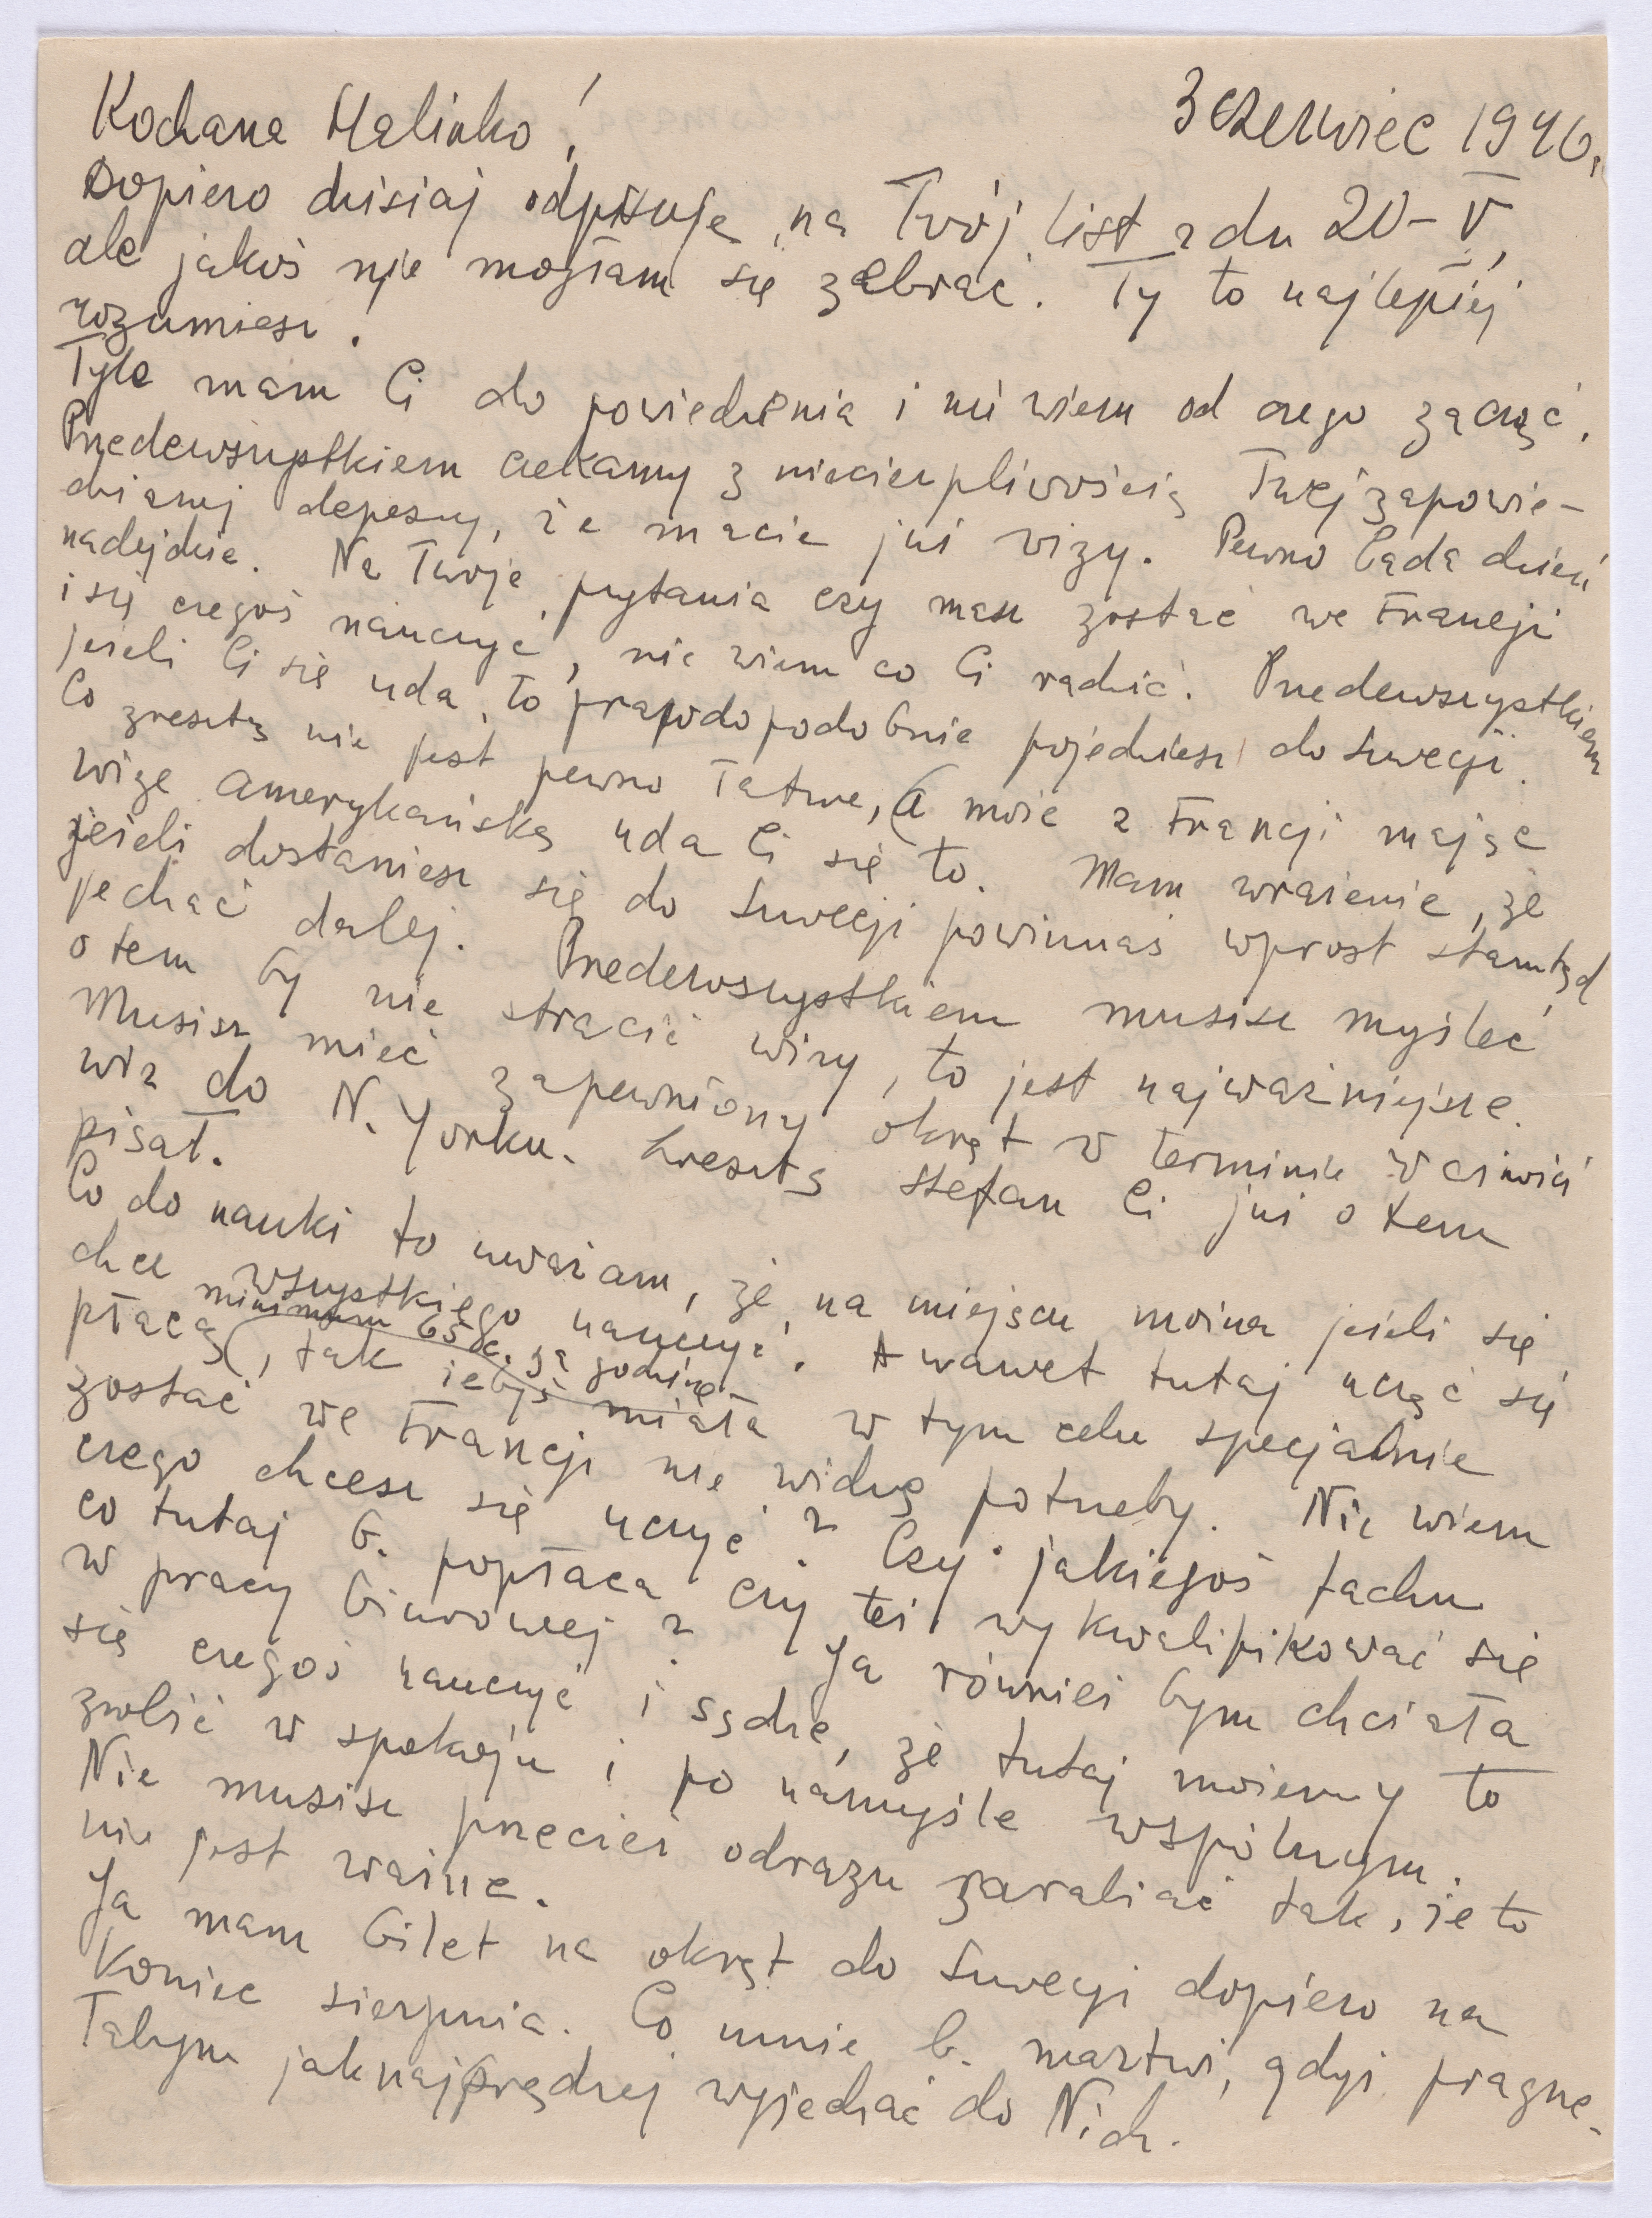 3 czerwiec 1946.
Kochana Halinko!
Dopiero dzisiaj odpisuję na Twój list z dn 20-V,
ale jakoś nie mogłam się zebrać. Ty to najlepiej
rozumiesz!
Tyle mam Ci do powiedzenia i nie wiem od czego zacząć.
Przedewszystkiem czekamy z niecierpliwością Twej zapowie-
dzianej depeszy, że macie już vizy. Pewno lada dzień
nadejdzie. Na Twoje pytania czy masz zostać we Francji
i się czegoś nauczyć, nie wiem co Ci radzić. Przedewszystkiem
jeżeli Ci się uda, to prawdopodobnie pojedziesz do Szwecji.
Co zresztą nie jest pewno łatwe, a może z Francji mając
wizę amerykańską uda Ci się to. Mam wrażenie, że
jeżeli dostaniesz się do Szwecji powinnaś wprost stamtąd
jechać dalej. Przedewszystkiem musisz myśleć
o tem by nie stracić wizy, to jest najważniejsze.
Musisz mieć zapewniony okręt w terminie ważności
wiz do N. Yorku. Zresztą Stefan Ci już o tem
pisał.
Co do nauki to uważam, że na miejscu można jeżeli się
chce wszystkiego nauczyć. A nawet tutaj ucząc się
płacą (minimum 65 c. za godzinę), tak żebyś miała w tym celu specjalnie
zostać we Francji nie widzę potrzeby. Nie wiem
czego chcesz się uczyć? Czy jakiegoś fachu
co tutaj b. popłaca czy też wykwalifikować się
w pracy biurowej? Ja również bym chciała
się czegoś nauczyć i sądzę, że tutaj możemy to
zrobić w spokoju i po namyśle wspólnym.
Nie musisz przecież odrazu zarabiać tak, że to
nie jest ważne.
Ja mam bilet na okręt do Szwecji dopiero na
koniec sierpnia. Co mnie b. martwi, gdyż pragnę-
łabym jaknajprędzej wyjechać do Nich.